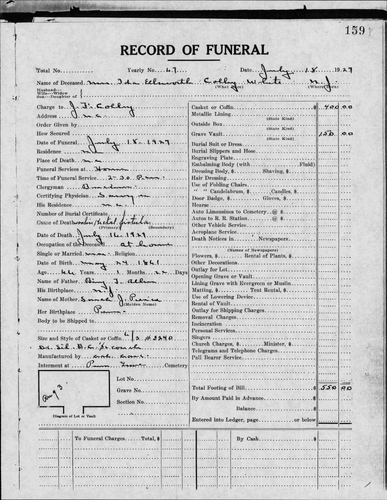 159
RECORD OF FUNERAL
Total No. Yearly No. 67. Date, July 18, 1927
Name of Deceased Mrs. Ida Ellsworth Colby White N.J.
Husband— Wife— Son—Daughter of (What) (Where)
Charge to J. F. Colby
Address
Order Given by
How Secured
Date of Funeral July 18, 1927
Residence
Place of Death
Funeral Services at Home
Time of Funeral Service 2:30 P.M.
Clergyman
Certifying Physician
His Residence
Number of Burial Certificate
Cause of Death
(Primary) (Secondary)
Date of Death July 16, 1927
Occupation of Deceased at home
Single or Married Religion
Date of Birth May 24 1861
Age 66 Years, 1 Months, 22 Days
Name of Father
His Birthplace
Name of Mother Sarah J. Pierce
(Maiden Name)
Her Birthplace
Body to be Shipped to
Size and Style of Casket or Coffin 6/3 #
Manufactured by
Interment at Cemetery
Lot No.
Grave No.
Section No.
Diagram of Lot or Vault
Casket or Coffin $ 400 00
Metallic Lining
(State Kind)
Outside Box
(State Kind)
Grave Vault 150 00
(State Kind)
Burial Suit or Dress
Burial Slippers and Hose
Engraving Plate
Embalming Body (with Fluid)
Dressing Body, $ Shaving, $
Hair Dressing
Use of Folding Chairs
" " Candelabrum, $ Candles, $
Door Badge, $ Gloves, $
Hearse
Auto Limousines to Cemetery @ $
Autos to R. R. Station @ $
Other Vehicle Service
Aeroplane Service
Death Notices in Newspapers
(Names of Newspapers)
Flowers, $ Rental of Plants, $
Other Decorations
Outlay for Lot
Opening Grave or Vault
Lining Grave with Evergreen or Muslin
Matting, $ Tent Rental, $
Use of Lowering Device
Rental of Vault
Outlay for Shipping Charges
Removal Charges
Incineration
Personal Services
Singers
Church Charges, $ Minister, $
Telegrams and Telephone Charges
Pall Bearer Service
Total Footing of Bill $ 550 00
By Amount Paid in Advance $
Balance $
Entered into Ledger, page or below
To Funeral Charges Total, $ By Cash $